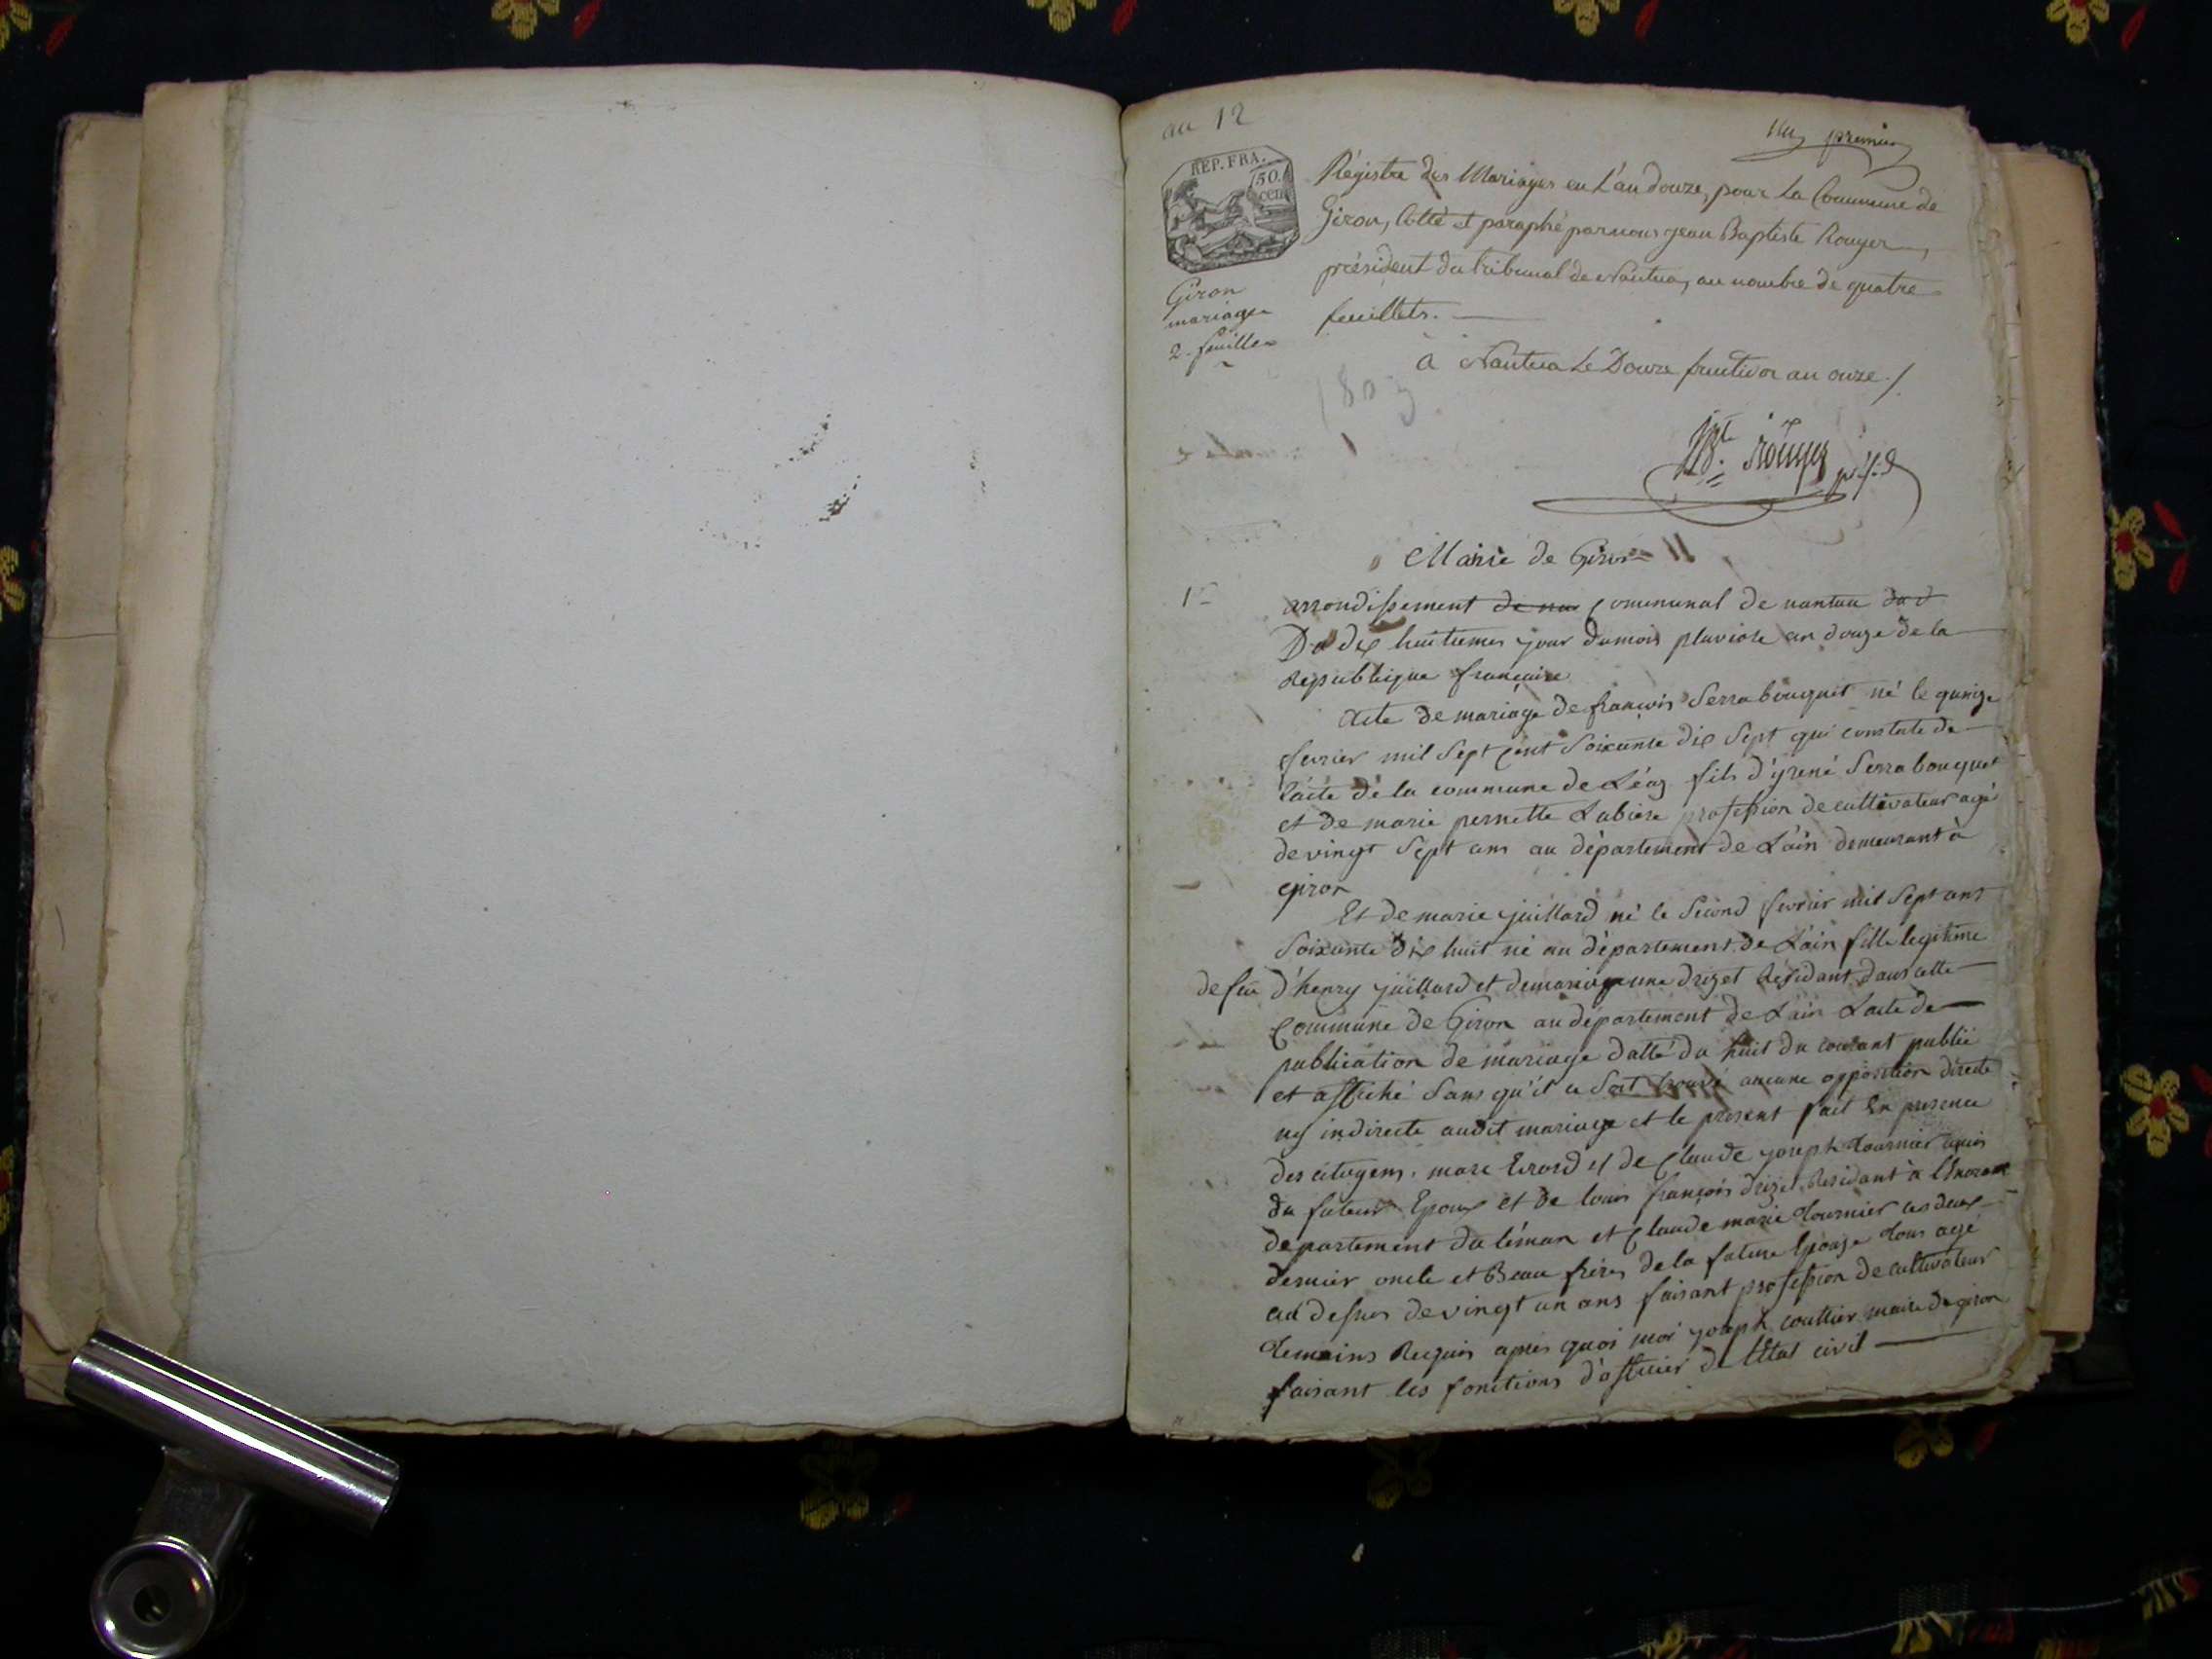 an 12
un, premier
REP. FRA.
50.
cen
Giron
mariage
2. feuilles
Régistre des Mariages en L'an douze, pour la Commune de
Giron, Cotté et paraphé par nous jean Baptiste Rouyer,
président du tribunal de Nantua, au nombre de quatre
feuillets.
à Nantua Le Douze fructidor an onze./.
180
JBte. Rouyer présid
Mairie de Giron
1er
arrondissement de nan Communal de nantua du d
Du dix huitiemes jour du mois pluviose an douze de la
Republique française
Acte de mariage de françois Serrabouquet né le quinze
fevrier mil Sept Cent Soixante dix Sept qui constate de
L'acte dé la commune de Léaz fils d'yrené Serrabouquet
et de marie pernette Labiere profession de cultivateur agé
de vingt Sept ans au département de L'ain demeurant à
giron
Et de marie juillard né le Second fevrier mil Sept ant
Soixante dix huit né au département de L'ain fille legitime
defeu d'henry juillard et de marie jeanne drizet Residant dans cette
Commune de Giron au département de L'ain L'acte de
publication de mariage datté du huit du courant publié
et affiché Sans qu'il ce Soit trouvé aucune opposition directe
ny indirecte audit mariage et le present fait En presence
des citoyens, marc Evrard et de Claude joseph tournier amis
du futeur Epoux et de louis françois drizet Residant à
departement du léman et Claude marie tournier ces deux
dernier oncle et Beau frères de la future Epouze tous agé
au dessus de vingt un ans faisant profession de cultivateur
temoins Requis apres quoi moi joseph couttier maire de giron
faisant les fonctions d'officier de l'Etat civil